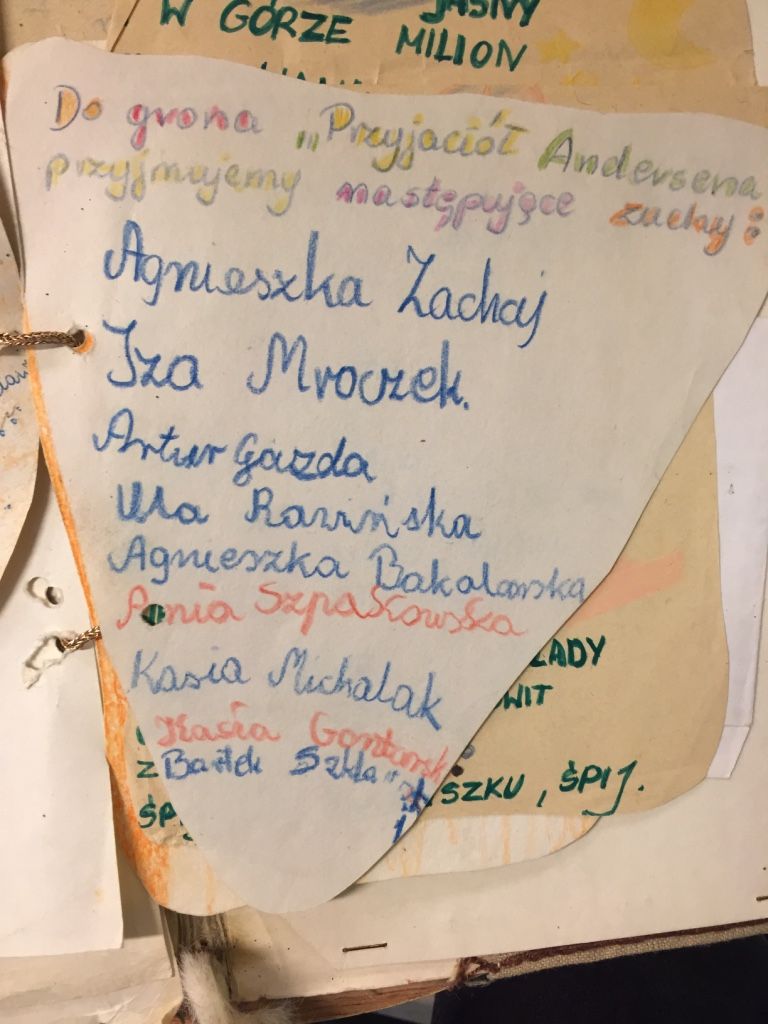 JASNY
W GÓRZE MILION
Do grona „Przyjaciół Andersena
przyjmujemy następujące zuchy:
Agnieszka Zachaj
Iza Mroczek.
Artur Gazda
Ula Rawińska
Agnieszka Bakalarska
Ania Szpakowska
Kasia Michalak
ŁADY
WIT
Kasia
Bartek
SZKU, ŚPIJ.